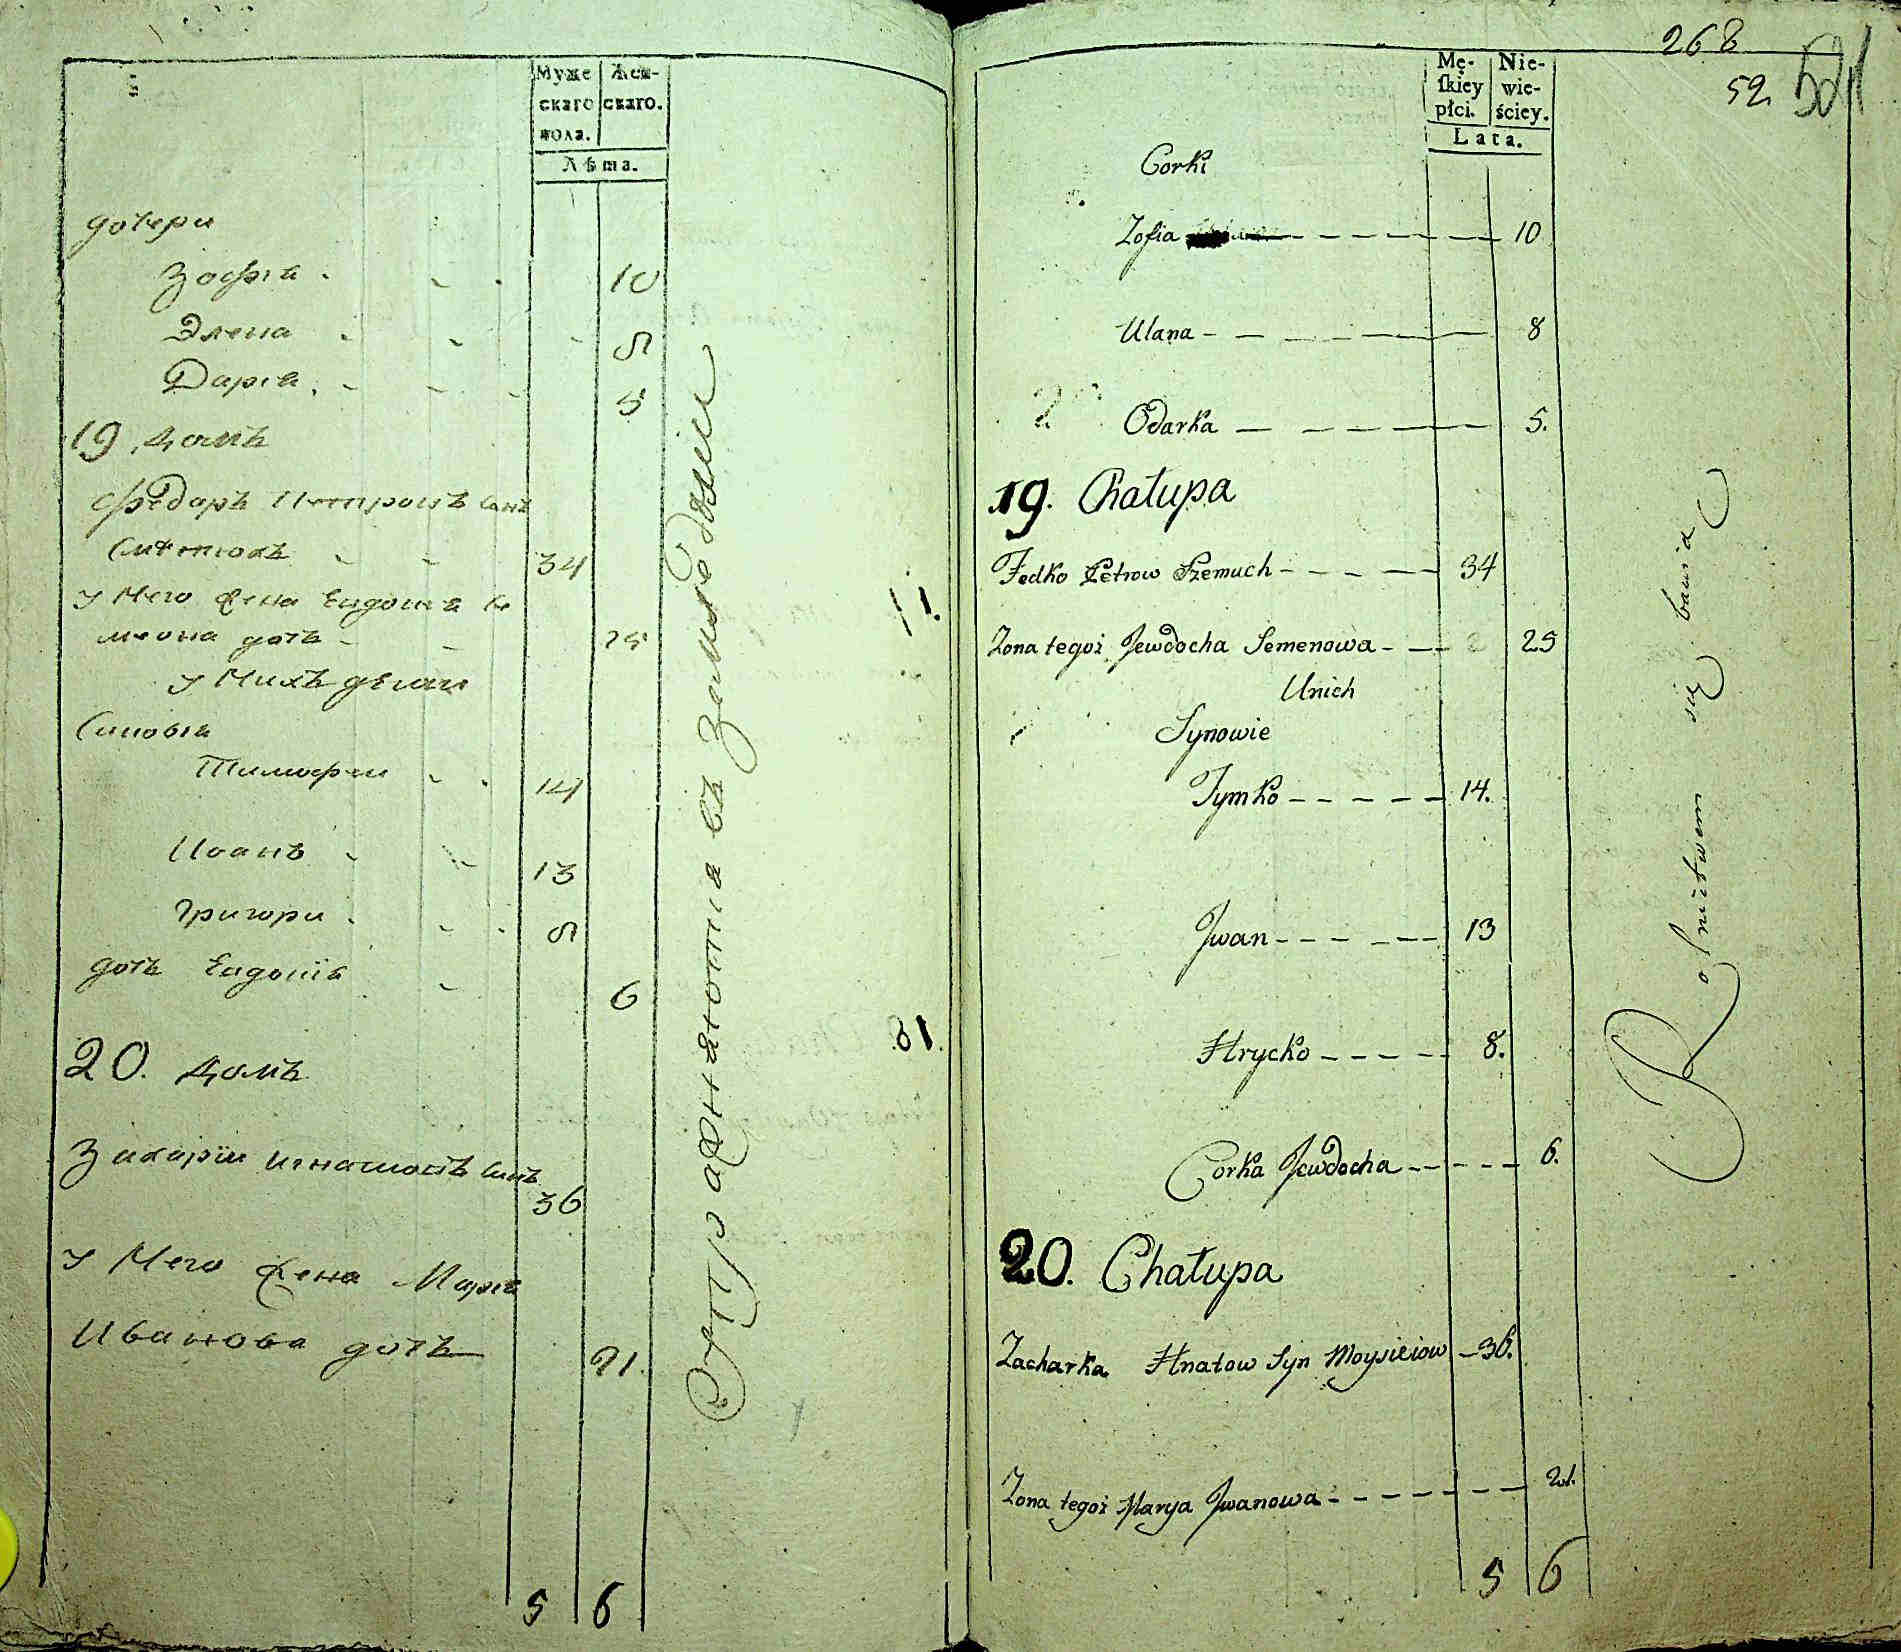 Муже Жен-
скаго скаго.
пола.
Лѣта.
дочери
Зофіа 10
Элена 8
Дарiа 5
19 домъ
Федоръ Петровъ сынъ
34
у Него Жена Евдошiа Се
меона дочь 25
у Нихъ дѣти
Синовiа
Тимофеи 14
Иванъ 13
Григори 8
дочь Евдошіа 6
20. домъ
Захарiи Игнатовъ сынъ 36
у Него Жена Марiа
Иванова дочь 21.
5 6
Упражняются въ
11.
18.
268
52.
521
Mę- Nie-
ſkiey wie-
płci. ściey.
Lata.
Corki
Zofia 10
Ulana 8
Odarka 5.
19. Chałupa
Fedko Petrow Szemuch 34
Zona tegoż Jewdocha Semenowa 25
Unich
Synowie
Tymko 14.
Jwan 13
Hrycko 8.
Corka Jewdocha 6.
20. Chałupa
Zacharka Hnatow Syn Moysieiow 36.
Zona tegoż Marya Jwanowa 21.
5 6
Rolnictwem się bawią